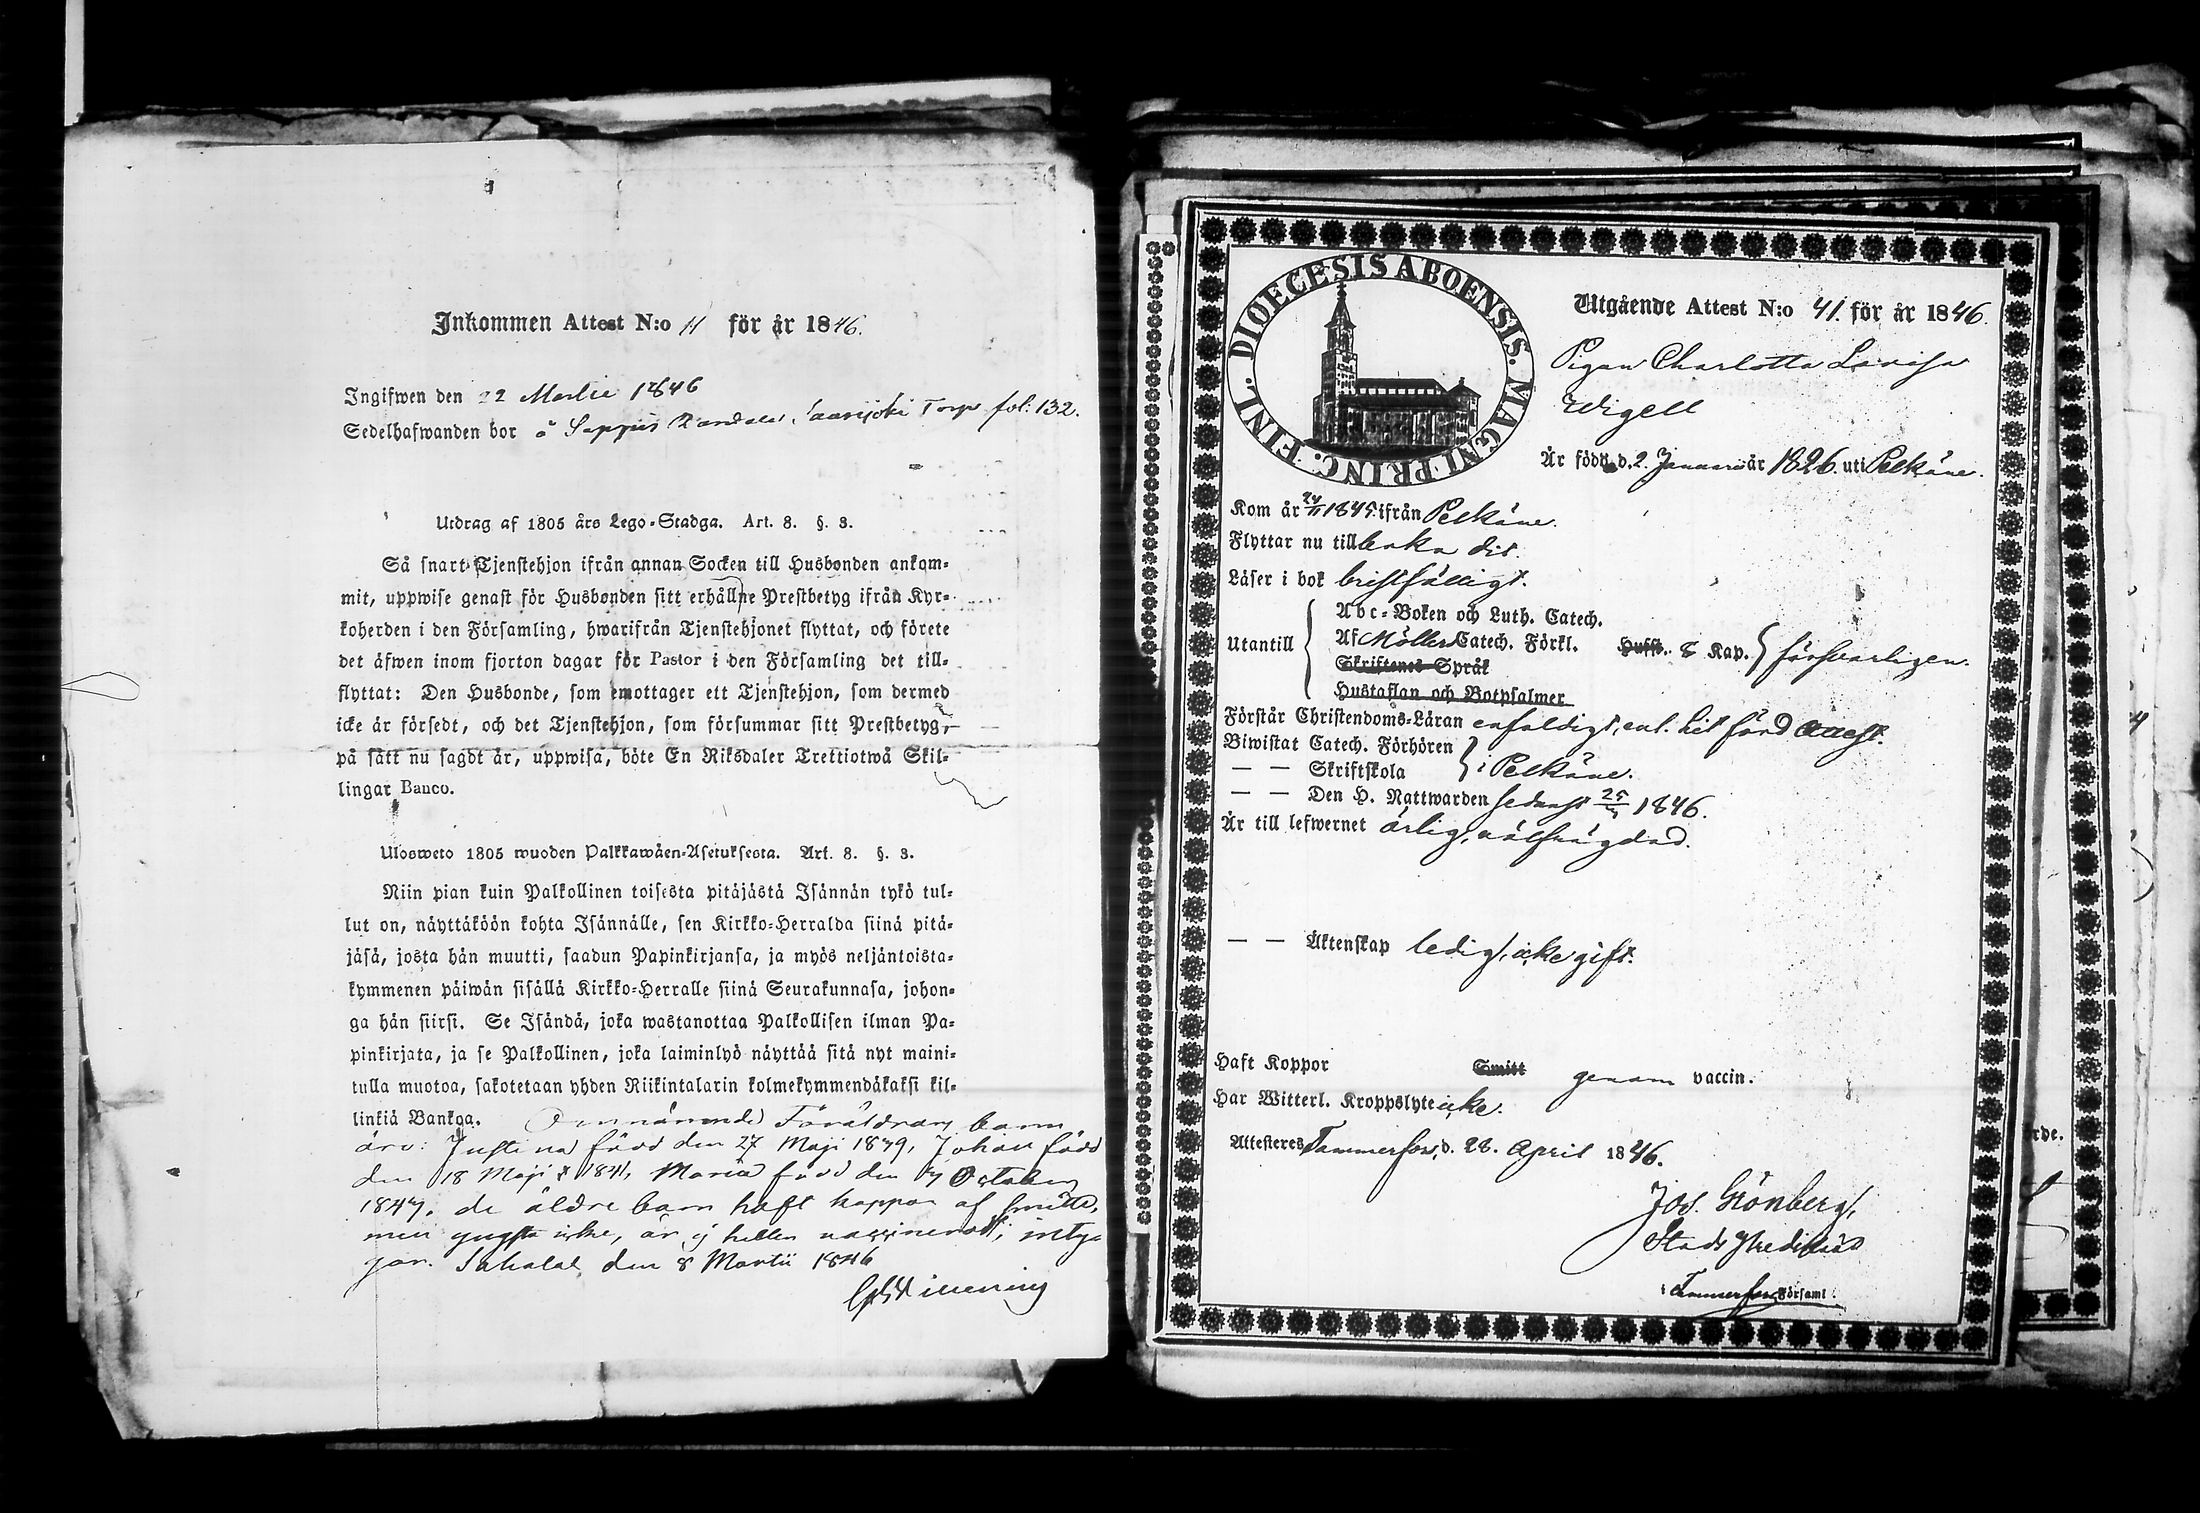 Inkommen Attest N:o 11 för år 1846.
Ingifwen den 22 Martii 1846
Sedelhafwanden bor å Seppäs Saarijoki Torp fol: 132.
Utdrag af 1805 års Lego-Stadga. Art. 8. §. 3.
Så snart Tjenstehjon ifrån annan Socken till Husbonden ankom-
mit, uppwise genast för Husbonden sitt erhållne Prestbetyg ifrån Kyr-
koherden i den Församling, hwarifrån Tjenstehjonet flyttat, och förete
det äfwen inom fjorton dagar för Pastor i den Församling det till-
flyttat: Den Husbonde, som emottager ett Tjenstehjon, som dermed
icke är försedt, och det Tjenstehjon, som försummar sitt Prestbetyg,
på sätt nu sagdt är, uppwisa, böte En Riksdaler Trettiotwå Skil-
lingar Banco.
Ulosweto 1805 wuoden Palkkawäen-Asetuksesta. Art. 8. §. 3.
Niin pian kuin Palkollinen toisesta pitäjästä Isännän tykö tul-
lut on, näyttäköön kohta Isännälle, sen Kirkko-Herralda siinä pitä-
jäsä, josta hän muutti, saadun Papinkirjansa, ja myös neljäntoista-
kymmenen päiwän sisällä Kirkko-Herralle siinä Seurakunnasa, johon-
ga hän siirsi. Se Isändä, joka wastanottaa Palkollisen ilman Pa-
pinkirjata, ja se Palkollinen, joka laiminlyö näyttää sitä nyt maini-
tulla muotoa, sakotetaan yhden Riikintalarin kolmekymmendäkaksi kil-
linkiä Bankoa. Omnämnde Föräldrars barn
äro: Justina född den 27 Maji 1839, Johan född
den 18 Maji 1841, Maria född den October
de äldre barn haft koppor af smitta,
men yngsta icke, är ej heller vaccinerad; intyg-
gar. Sahalax den 8 Martii 1846
DIOECESIS ABOENSIS. MAGNI PRINC. FINL.
Utgående Attest N:o 41. för år 1846.
Pigan Charlotta Lovisa
Wigell
Är född d. 2. Januari år 1826. uti Pelkäne.
Kom år 24/11 1845 ifrån Pelkäne.
Flyttar nu tillbaka dit.
Läser i bok bristfälligt.
Utantill
Abc-Boken och Luth. Catech.
Af Möllers Catech. Förkl. Hufst. 8 Kap. försvarligen.
Skriftenes Språk
Hustaflan och Botpsalmer
Förstår Christendoms-Läran enfaldigt, enl. hit förd attest.
Biwistat Catech. Förhören
— — Skriftskola i Pelkäne.
— — Den H. Nattwarden sednast 1846.
Är till lefwernet ärlig, välfrägdad.
— — Äktenskap ledig, icke gift.
Haft Koppor Smitt genom vaccin.
Har Witterl. Kroppslyte icke.
Attesteres Tammerfors, d. 28. April 1846.
Jos. Grönberg,
Stads Predikant
i Tammerfors Församl.